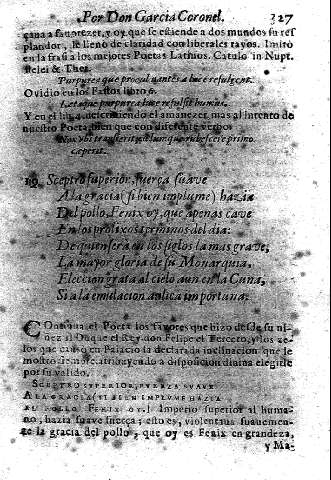 Por Don Garcia Coronel. 327
çana a fauorezer, y oy que se estiende a dos mundos su res
plandor, le lleno de claridad con liberales rayos. Imitò
en la frasi a los mejores Poetas Latinos. Catulo in Nupt.
Pelei & Thet.
Purpurea que procul nantes à luce refulgent.
Ouidio en los Fastos libro 6.
purpurea luce refulsit humus.
Y en el descriuiendo el amanezer mas al intento de
nuestro Poeta, bien que con diferente verbo.
rubescere primo
ceperit.
19. Sceptro superior, fuerça suaue
A la gracia (si bien implume) hazia
Del pollo, Fenix oy, que apenas caue
En los prolixos terminos del dia:
De quien serà en los siglos la mas graue,
La mayor gloria de su Monarquia,
Eleccion grata al cielo aun en la Cuna,
Si a la emulacion aulica importuna.
COntinua el Poeta los fauores que hizo desde su ni-
ñez al Duque el Rey don Felipe el Tercero, y los ze-
los que causò en Palacio la declarada inclinacion que le
mostrò siempre, atribuyendo a disposicion diuina elegirle
por su valido.
SCEPTRO SUPERIOR, FUERZA SUAUE
A LA GRACIA (SI BIEN IMPLUME HAZIA
EL POLLO FENIX OY.] Imperio superior al huma-
no, hazia suaue fuerça; esto es, violentaua suauemen-
te la gracia del pollo, que oy es Fenix en grandeza,
y Ma-